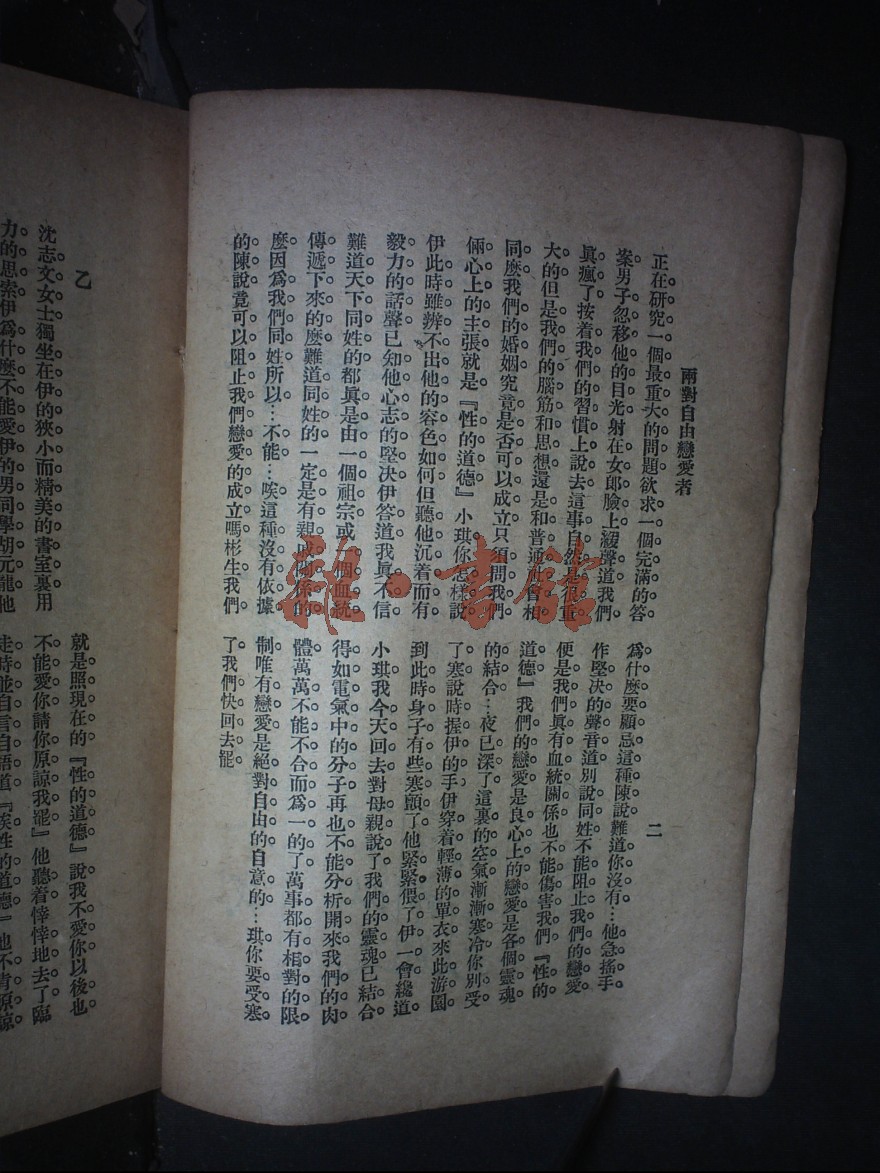 兩對自由戀愛者
二
正在研究一個最重大的問題欲求一個完滿的答
案男子忽移他的目光射在女郎臉上緩聲道我們
眞瘋了按着我們的習慣上說去這事自然是很重
大的但是我們的腦筋和思想還是和普通社會相
同麼我們的婚姻究竟是否可以成立只須問我們
倆心上的主張就是『性的道德』小琪你怎樣說
伊此時雖辨不出他的容色如何但聽他沉着而有
毅力的話聲已知他心志的堅決伊答道我眞不信
難道天下同姓的都眞是由一個祖宗或一個血統
傳遞下來的麼難道同姓的一定是有親戚關係的
麼因爲我們同姓所以…不能…唉這種沒有依據
的陳說竟可以阻止我們戀愛的成立嗎彬生我們
爲什麼要顧忌這種陳說難道你沒有…他急搖手
作堅決的聲音道別說同姓不能阻止我們的戀愛
便是我們眞有血統關係也不能傷害我們『性的
道德』我們的戀愛是良心上的戀愛是各個靈魂
的結合…夜已深了這裏的空氣漸漸寒冷你別受
了寒說時握伊的手伊穿着輕薄的單衣來此游園
到此時身子有些寒顫了他緊緊偎了伊一會纔道
小琪我今天回去對母親說了我們的靈魂已結合
得如電氣中的分子再也不能分析開來我們的肉
體萬萬不能不合而爲一的了萬事都有相對的限
制唯有戀愛是絕對自由的自意的…琪你要受寒
了我們快回去罷
乙
沈志文女士獨坐在伊的狹小而精美的書室裏用
力的思索伊爲什麼不能愛伊的男同學胡元龍他
就是照現在的『性的道德』說我不愛你以後也
不能愛你請你原諒我罷』他聽着悻悻地去了臨
走時並自言自語道『唉性的道德』他不肯原諒
雜·書館